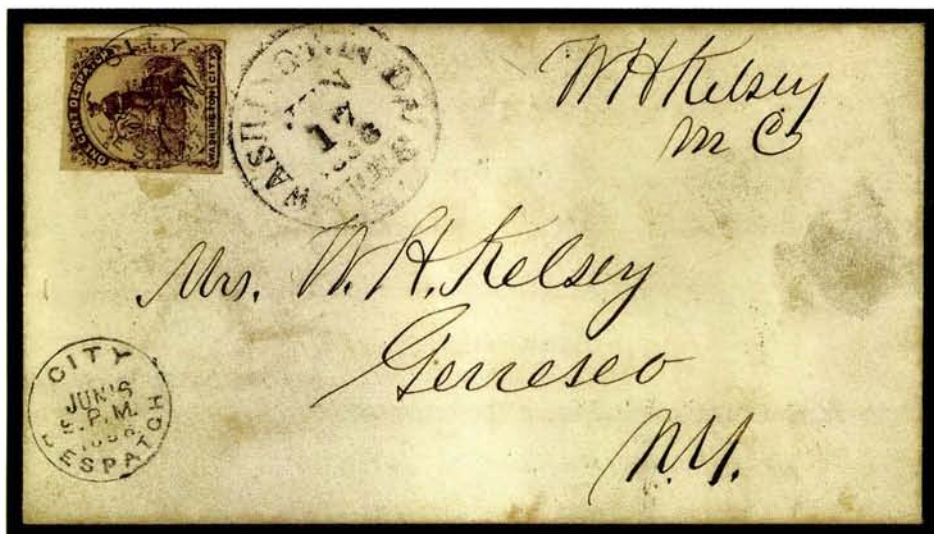 ONE CENT DESPATCH
WASHINGTON CITY
CITY
WASHINGTON D.C.
JUN
17
W H Kelsey
M C
Mrs. W. H. Kelsey
Geneseo
N.Y.
CITY
JUN
P.M.
DESPATCH